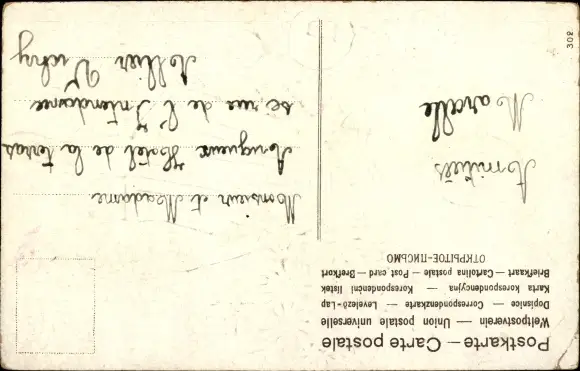 Postkarte — Carte postale
Weltpostverein — Union postale universelle
Dopisnice — Correspondenzkarte — Levelező-Lap
Karta korespondencyjna — Korespondenční lístek
Briefkaart — Cartolina postale — Post card — Brefkort
ОТКРЫТОЕ-ПИСЬМО
Amitiés
Marcelle
Monsieur et Madame
Hotel de la terras
se rue de l'Intendance
Allier Vichy
302